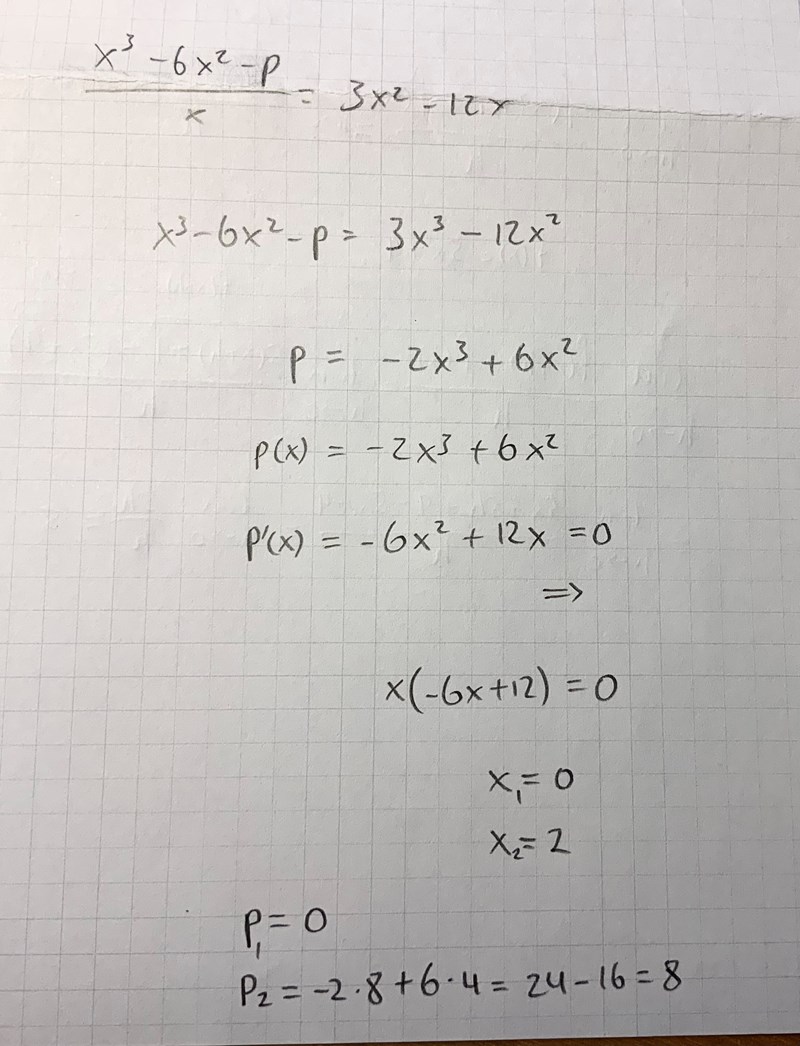 x³ - 6x² - p / x = 3x² - 12x
x³ - 6x² - p = 3x³ - 12x²
p = -2x³ + 6x²
p(x) = -2x³ + 6x²
p'(x) = -6x² + 12x = 0
⇒
x(-6x+12) = 0
x₁ = 0
x₂ = 2
p₁ = 0
p₂ = -2·8 + 6·4 = 24 - 16 = 8